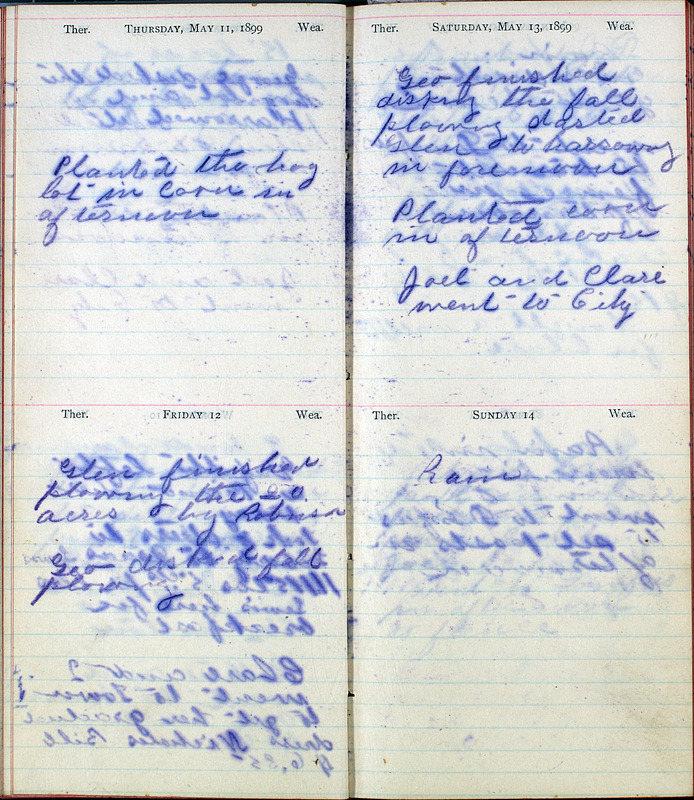 Ther. THURSDAY, MAY 11, 1899 Wea.
Planted the hog
lot in corn in
afternoon
Ther. FRIDAY 12 Wea.
Glen finished
plowing the 20
acres by Robison
Geo disked fall
plowing
Ther. SATURDAY, MAY 13, 1899 Wea.
Geo finished
disking the fall
plowing started
Glen to harrowing
in fore noon
Planted corn
in afternoon
Joel and Clare
went to City
Ther. SUNDAY 14 Wea.
Rain